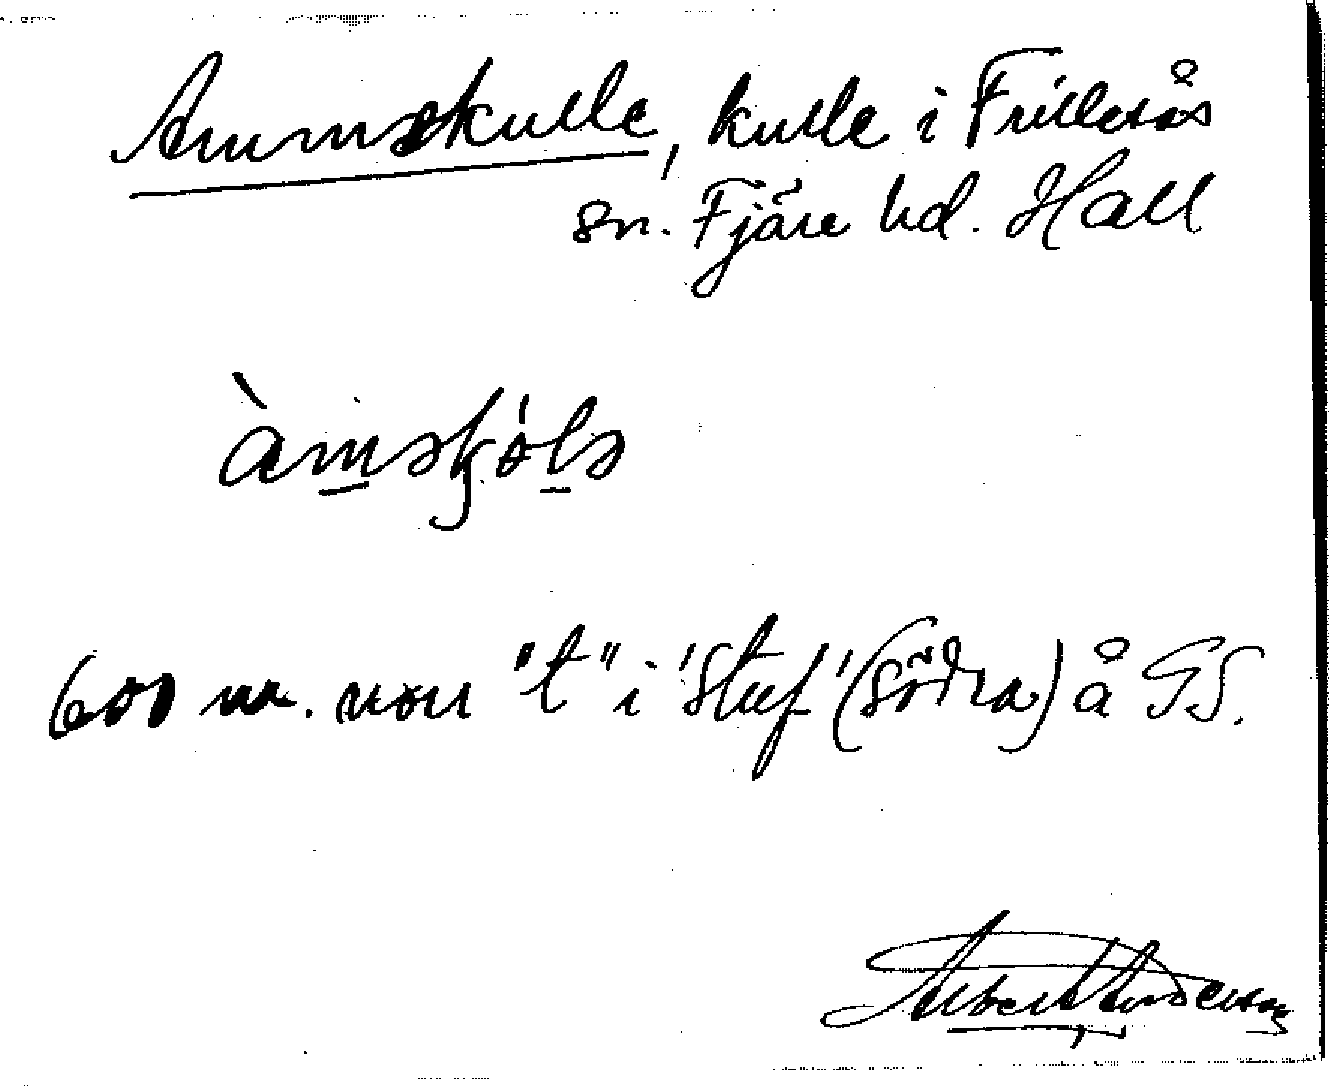 Ammekulle, kulle i Frillesås
sn. Fjäre hd. Hall
600 m. nou "t" i 'Stuf' (Södra) å GS.
Albert Anderson